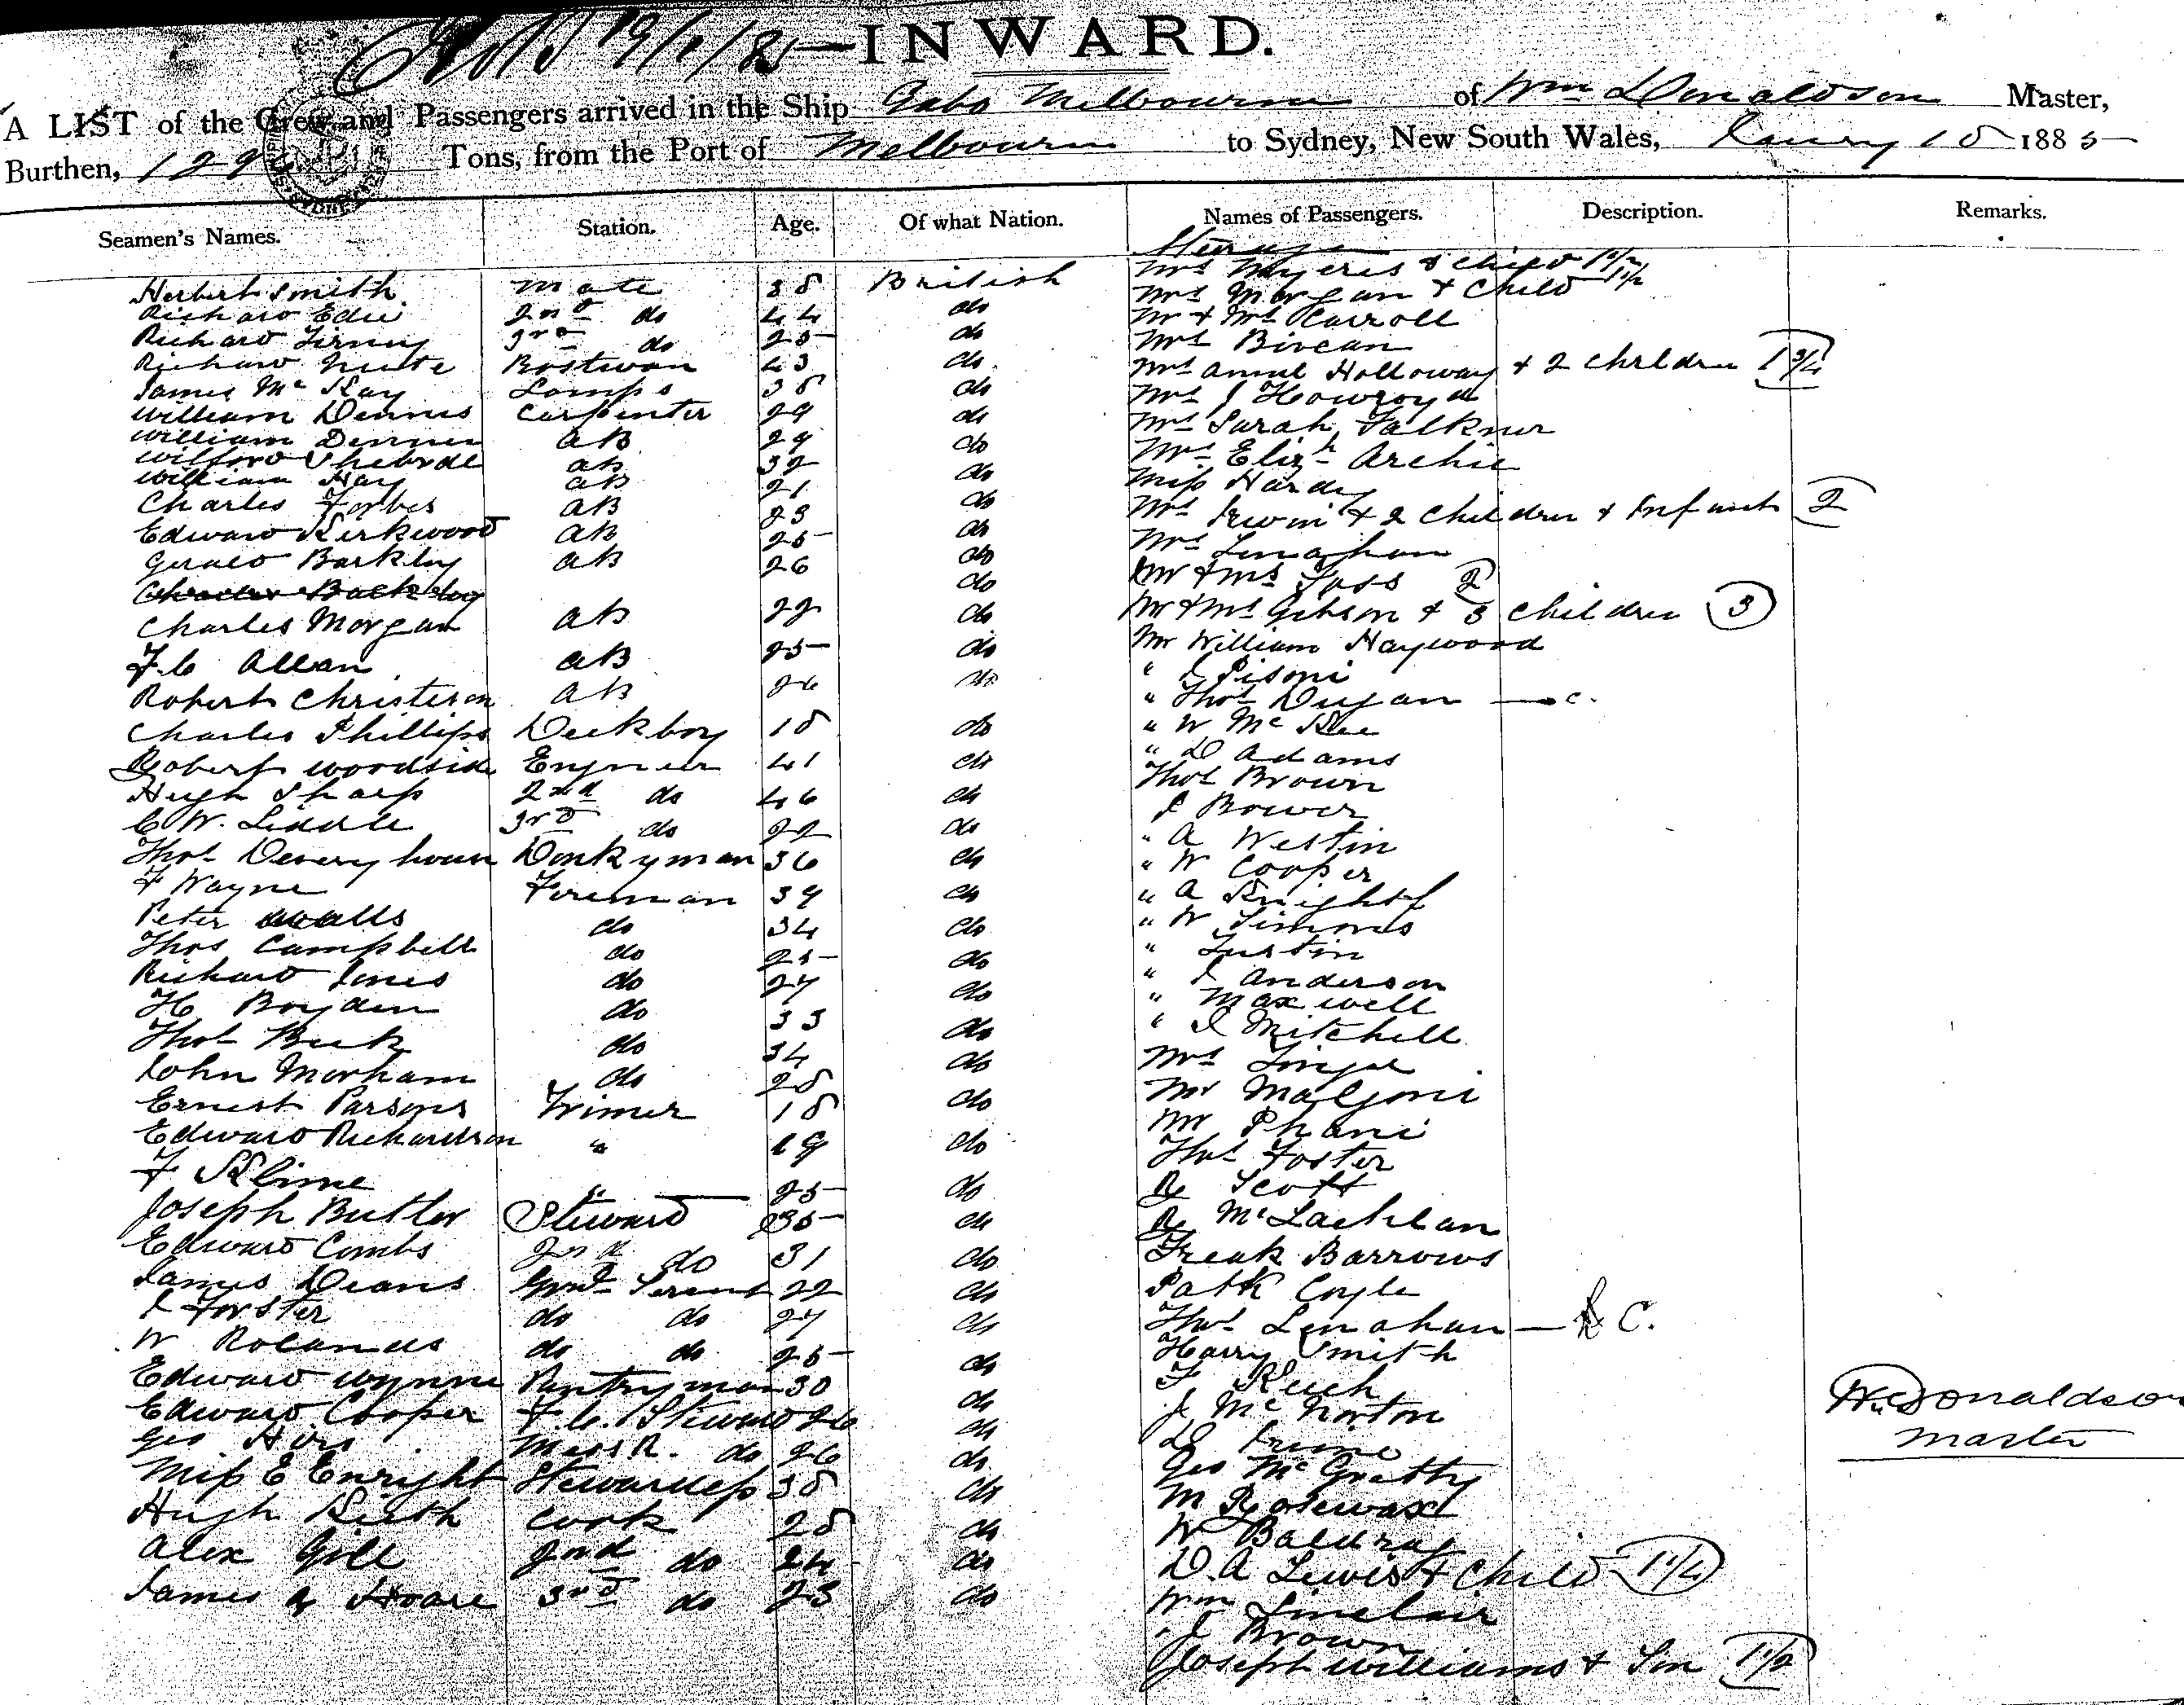 INWARD.
A LIST of the Crew and Passengers arrived in the Ship Gabo Melbourne of Wm Donaldson Master,
Burthen, Tons, from the Port of Melbourne to Sydney, New South Wales, 1885
Seamen's Names. Station. Age. Of what Nation. Names of Passengers. Description. Remarks.
Steerage
Mrs Myeris & child 1 1/2
Herbert Smith mate 38 British Mrs Morgan & Child 1 1/2
Richard Edie 2nd do 44 do Mr & Mrs Carroll
Richard 3rd do 25 do Mrs Bivean
Richard 43 do Mrs Annie Holloway & 2 children 1 3/4
James McKay Lamps 38 do Mrs J Howroyd
William Dennis Carpenter 29 do Mrs Sarah Falkner
William AB 29 do Mrs Elizh Archie
AB 32 do Miss Hardy
William Hay AB 21 do Mrs Irwin & 2 Children & Infant 2
Charles Forbes AB 23 do Mrs Lenaghan
Edward Kirkwood AB 25 do Mr & Mrs 2
Gerald Barkley AB 26 do Mr & Mrs Gibson & 3 Children 3
Charles Morgan AB 22 do Mr William Haywood
F.C Allan AB 25 do " Pisoni
Robert Christison AB 26 do " Thos Dugan — c.
Charles Phillips Deckboy 18 do " W McKee
Robert Woodside Engineer 41 do " D Adams
Hugh Sharp 2nd do 46 do Thos Brown
C W. Liddle 3rd do 22 do J Bower
Thos Donkyman 36 do " A Westin
F Wayne Foreman 39 do " W Cooper
Peter Walls do 34 do " A Knight
Thos Campbell do 25 do " W Simons
Richard Jones do 27 do "
H Boyden do 33 do " J Anderson
Thos Buck do 34 do " Maxwell
John Morham do 28 do " J Mitchell
Ernest Parsons Trimer 18 do Mrs
Edward Richardson " 19 do Mr Maljoni
F Klime " 25 do Mr Phani
Joseph Butler Steward 35 do Thos Foster
Edward Combs 2nd do 31 do R Scott
James Deans 22 do R McLachlan
J Forster do do 27 do Freak Barrows
W Rolands do do 25 do Patk Coyle
Edward Wynne Pantryman 30 do Thos Lenahan — R C.
Edward Cooper F.C. Steward 26 do Harry Smith
Geo Mess R. do 26 do F
Miss E Enright Stewardess 38 do J McNorton
Hugh Keith Cook 28 do D Prime
Alex Gill 2nd do 24 do Geo McGratty
James A Hoare 3rd do 23 do M Rosewax
W Baldray
D.A Lewis & Child 1 1/4
Wm Sinclair
J Brown
Joseph Williams & Son 1 1/2
W. Donaldson
Master